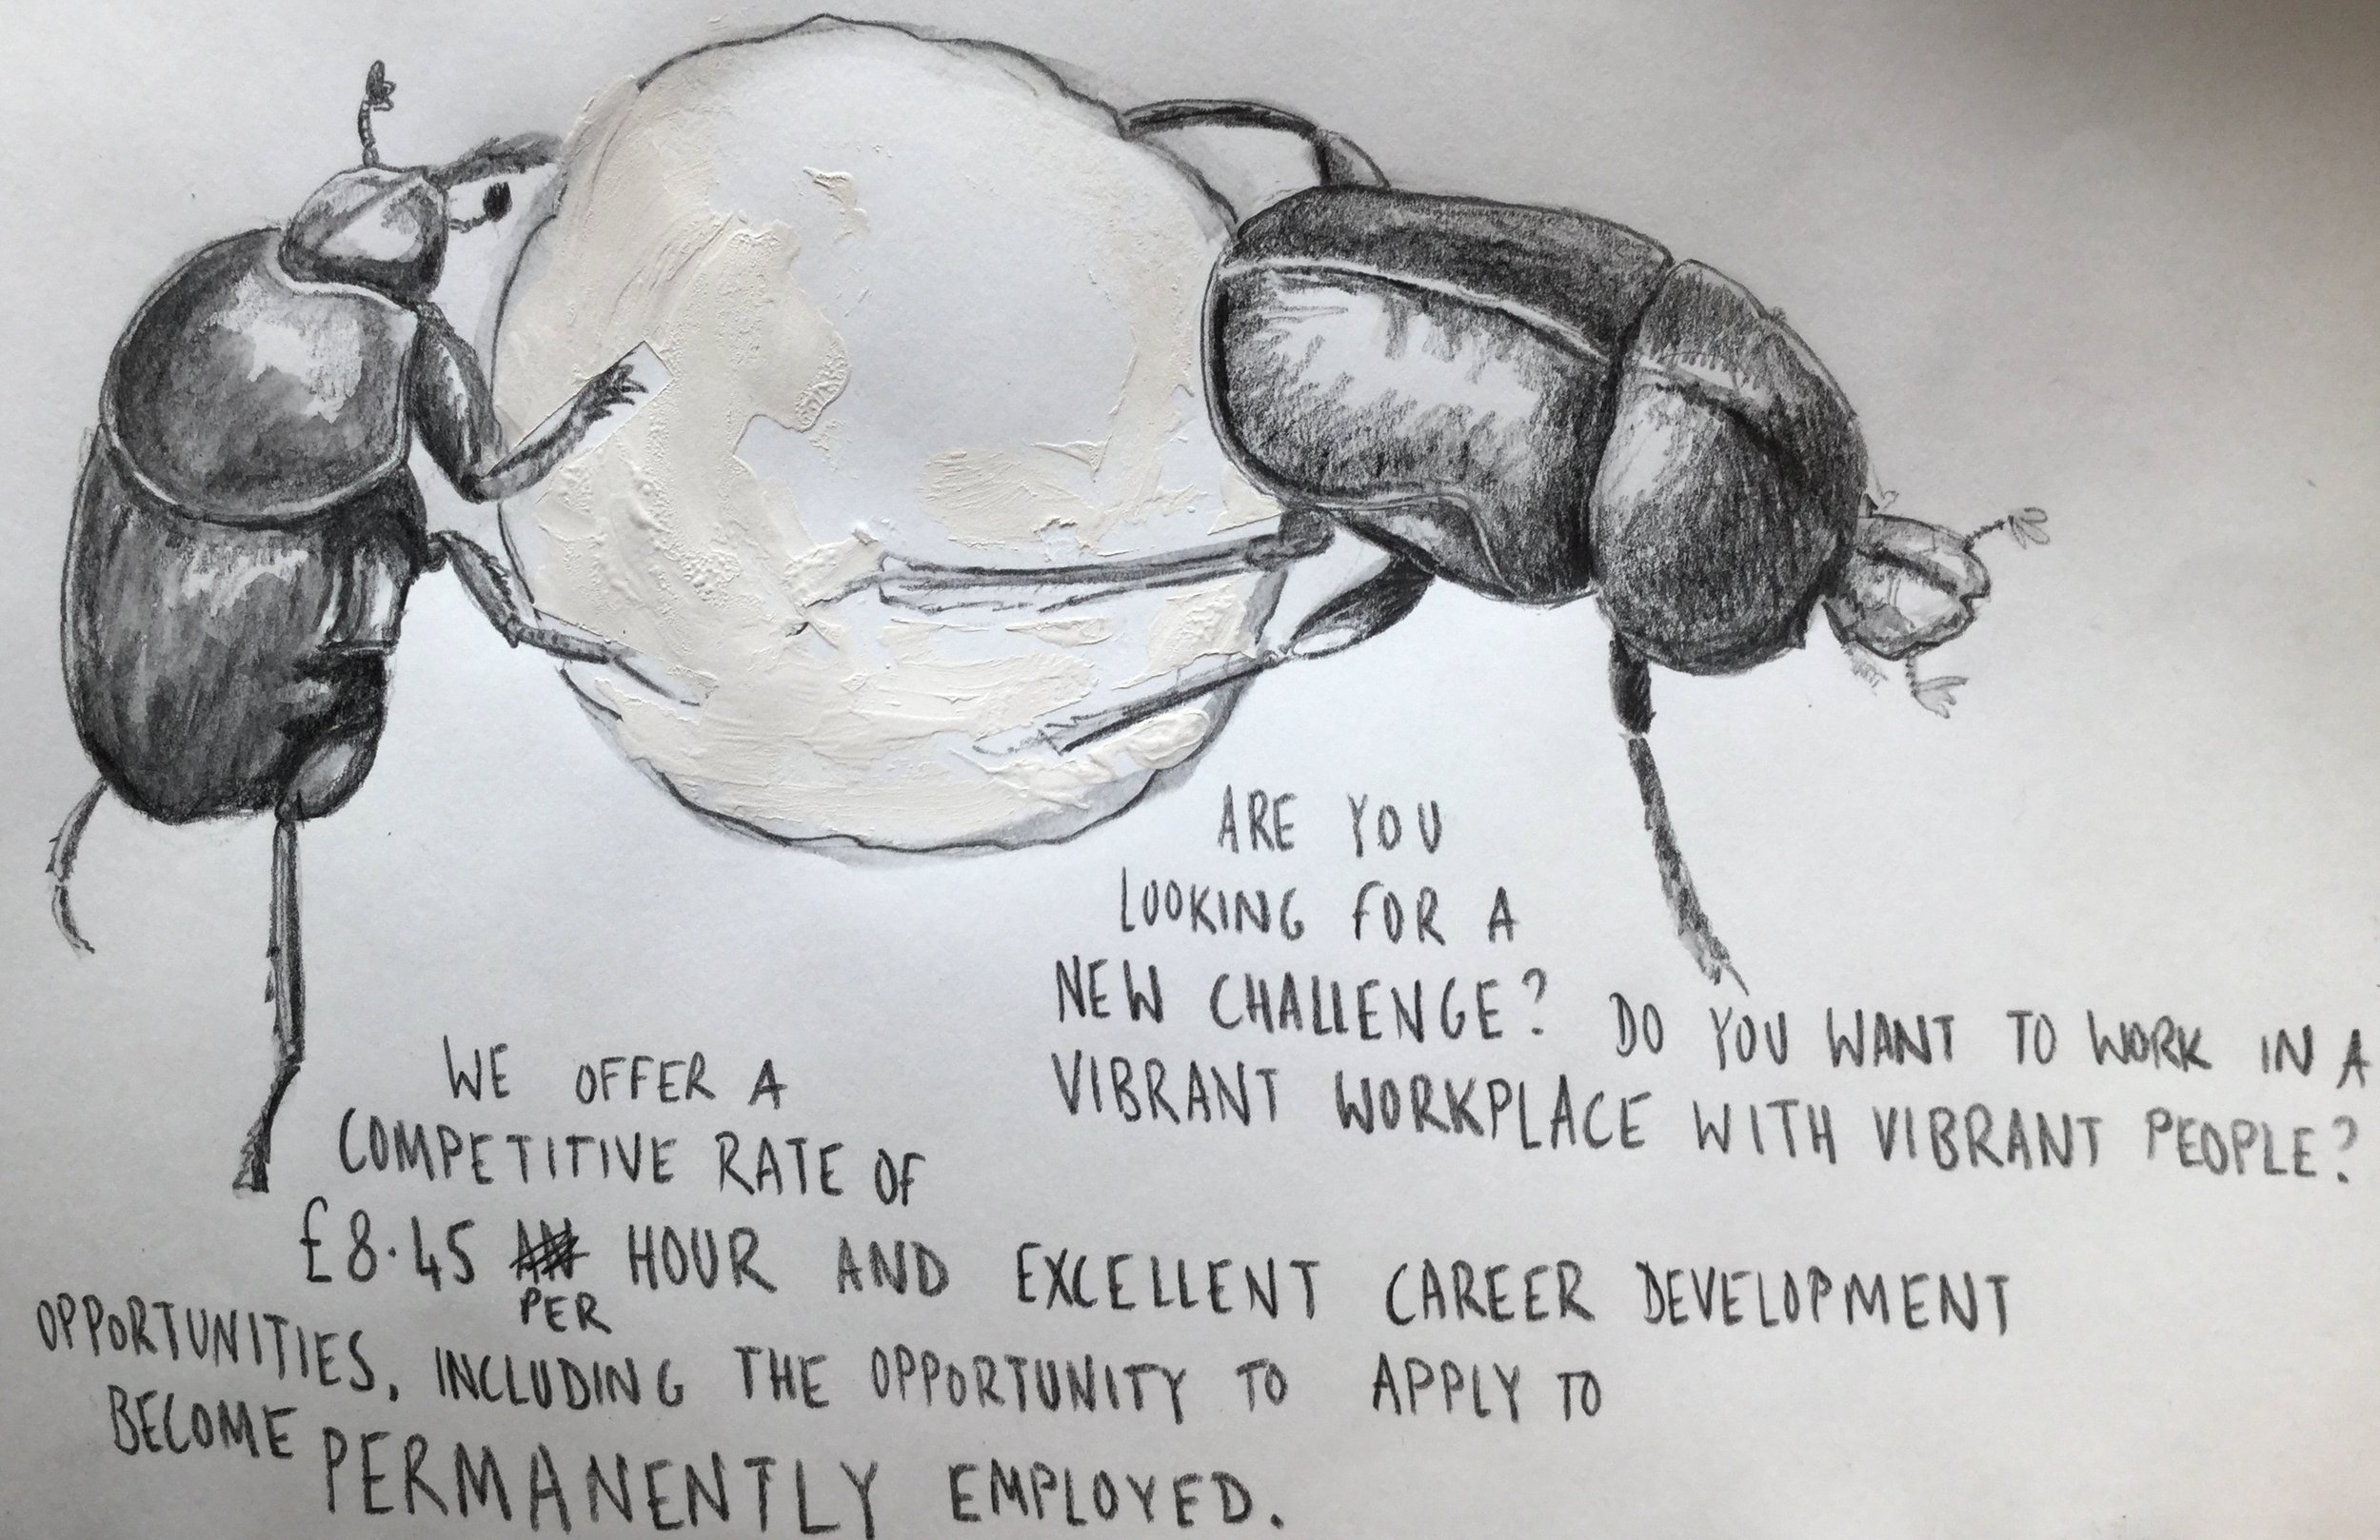 ARE YOU
LOOKING FOR A
NEW CHALLENGE? DO YOU WANT TO WORK IN A
VIBRANT WORKPLACE WITH VIBRANT PEOPLE?
WE OFFER A
COMPETITIVE RATE OF
£8.45 PER HOUR AND EXCELLENT CAREER DEVELOPMENT
OPPORTUNITIES, INCLUDING THE OPPORTUNITY TO APPLY TO
BECOME PERMANENTLY EMPLOYED.